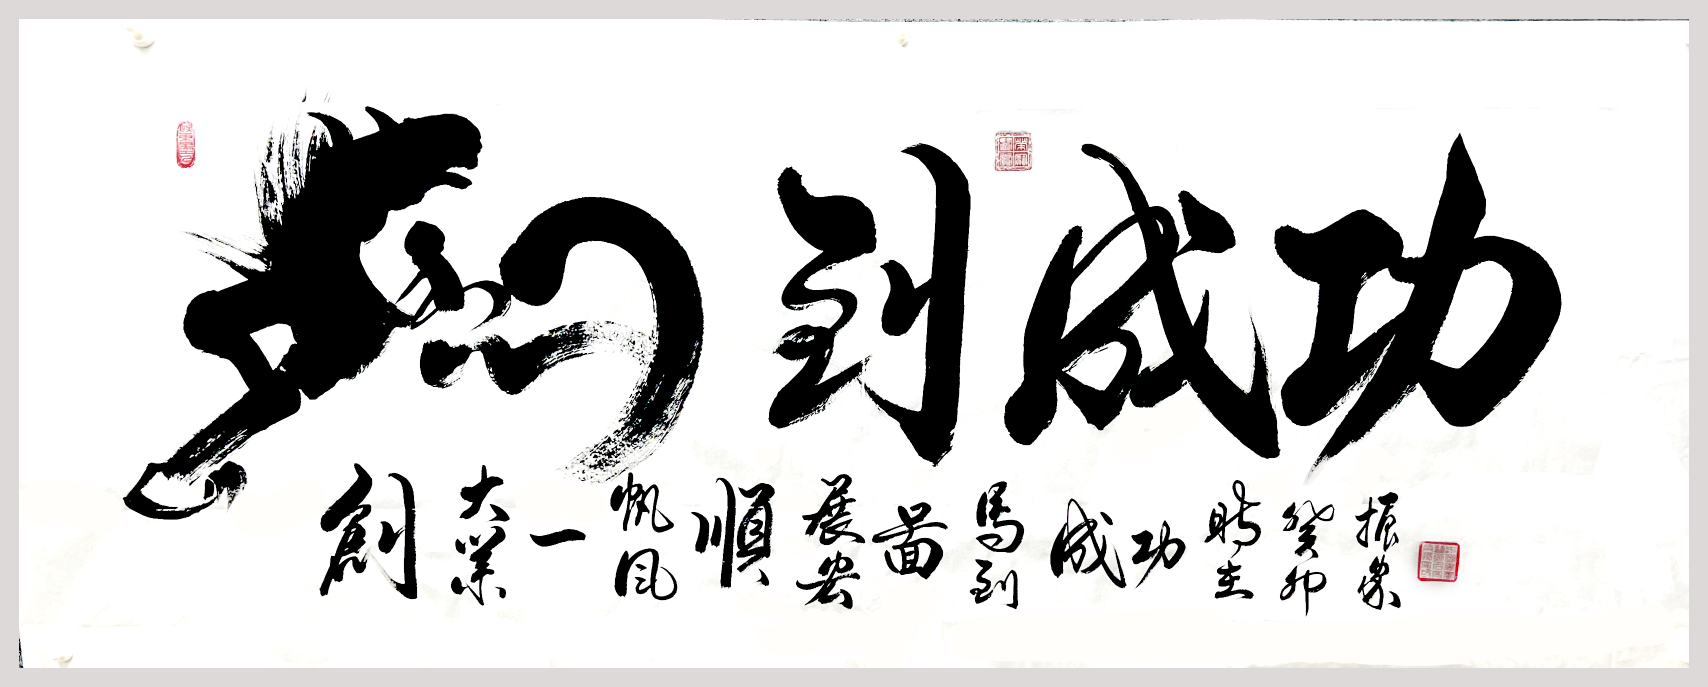 馬到成功
創大業一帆風順展宏圖馬到成功時在癸卯振榮